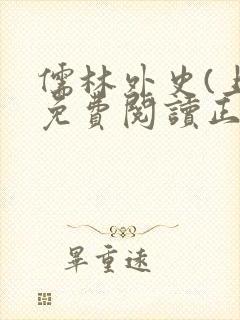 儒林外史(
免費閱讀正
畢重遠